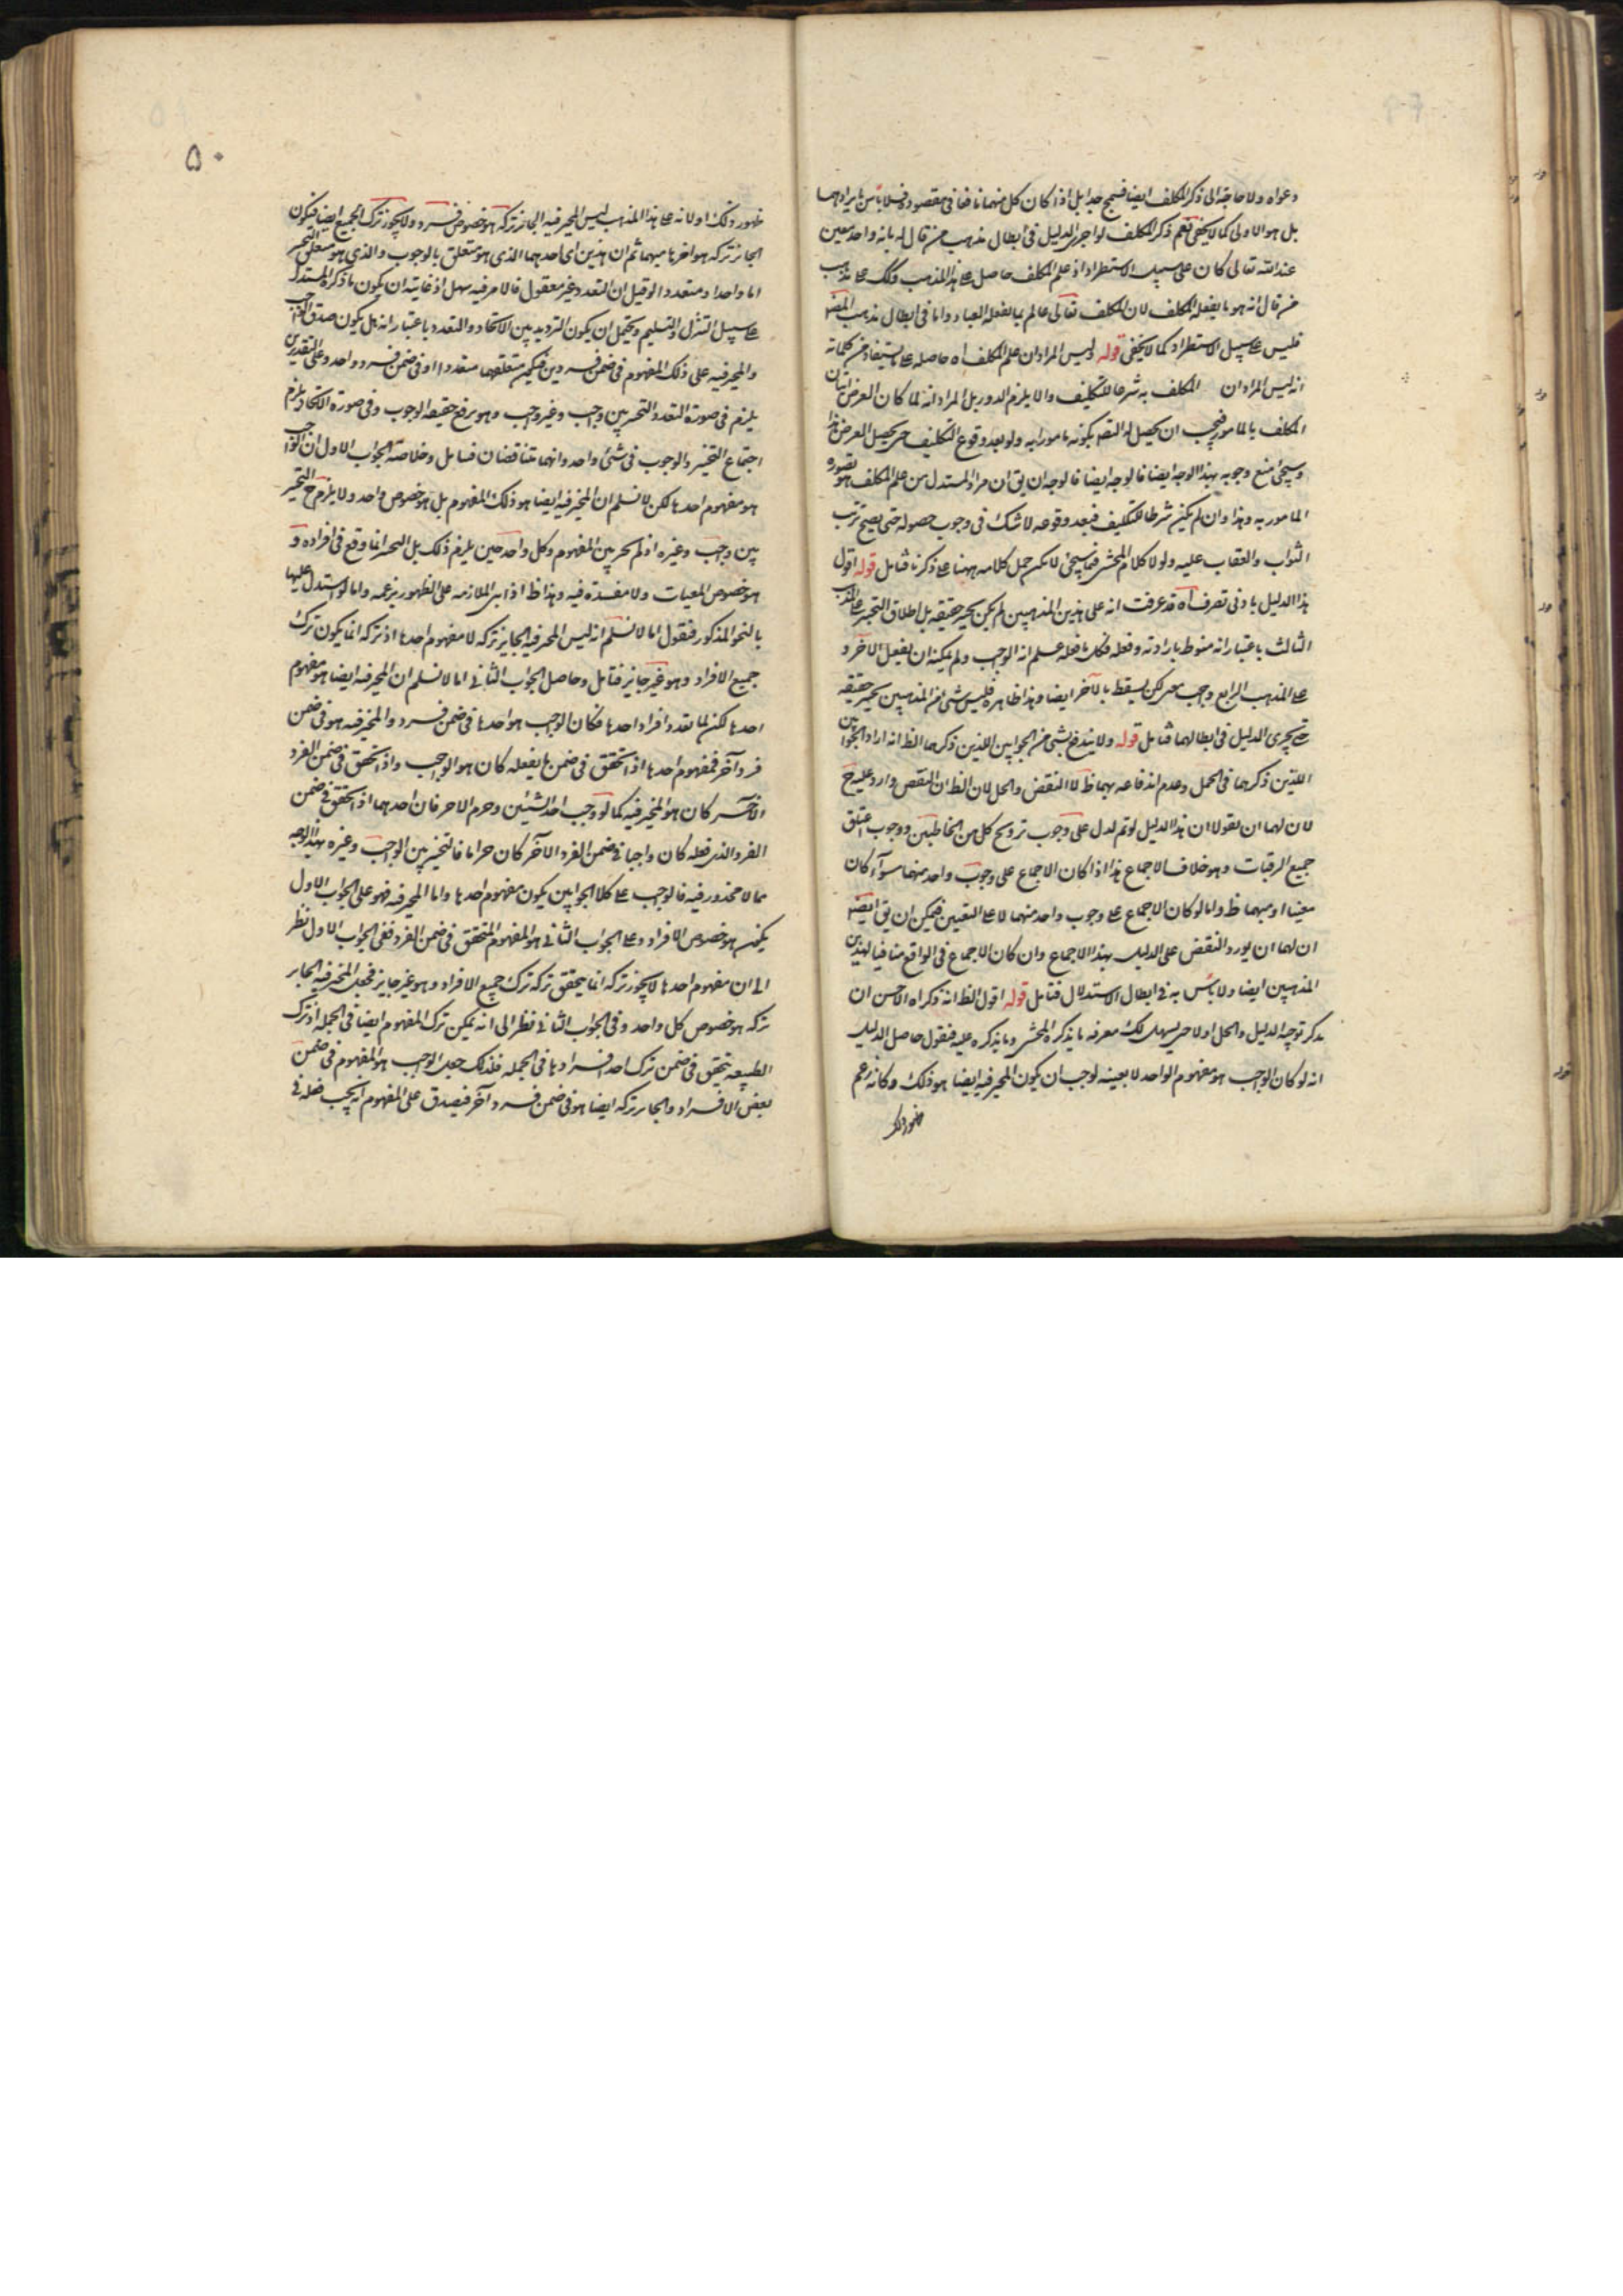 دعواه ولا حاجة الى ذكر المكلف ايضا فسمج جدا بل اذا كان كل منهما نافعا فى مقصوده فلا باس بايرادهما
بل هو الاولى كما لا يخفى نعم ذكر المكلف لو اجرى الدليل فى ابطال مذهب من قال له بانه واحد معين
عند الله تعالى كان على سبيل الاستطراد اذ علم المكلف حاصل على هذا المذهب وكك على مذهب
من قال انه هو ما يفعله المكلف لان المكلف تعالى عالم بما يفعله العباد واما فى ابطال مذهب المصنف
فليس على سبيل الاستطراد كما لا يخفى قوله وليس المراد ان علم المكلف اه حاصله على ما يستفاد من كلماته
انه ليس المراد ان المكلف به شرطا للتكليف والا يلزم الدور بل المراد انه لما كان الغرض اتيان
المكلف بالمامور فيجب ان يحصل له التصور بكونه مامورا به ولو بعد وقوع التكليف حتى يحصل الغرض هذا
وسيجئ منع وجوبه بهذا الوجه ايضا فالوجه ايضا فالوجه ان يق ان مراد المستدل من علم المكلف هو تصوره
المامور به وهذا وان لم يكن شرطا للتكليف فبعد وقوعه لا شك فى وجوب حصوله حتى يصح ترتب
الثواب والعقاب عليه ولولا كلام المحشى فيما سيجئ لا يمكن حمل كلامه ههنا على ما ذكرنا فتامل قوله اقول
هذا الدليل بادنى تصرف اه قد عرفت انه على هذين المذهبين لم يكن تخيير حقيقة بل اطلاق التخيير على المذهب
الثالث باعتبار انه منوط بارادته وفعله فكل ما فعله علم انه الواجب ولم يمكنه ان يفعل الآخر و
على المذهب الرابع وجب معين لكن يسقط بالآخر ايضا وهذا ظاهر فليس شئ من المذهبين تخيير حقيقة
حتى يجرى الدليل فى ابطالهما فتامل قوله ولا يندفع بشئ من الجوابين اللذين ذكرهما الظ انه اراد الجوابين
اللذين ذكرهما فى الحل وعدم اندفاعه بهما ظ لا النقض والحل لان الظ ان النقض وارد عليه ح
لان لهما ان يقولا ان هذا الدليل لو تم لدل على وجوب تزويج كل من الخاطبين ووجوب اعتاق
جميع الرقبات وهو خلاف الاجماع هذا اذا كان الاجماع على وجوب واحد منهما سواء كان
معينا او مبهما ظ واما لو كان الاجماع على وجوب واحد منهما لا على التعيين فيمكن ان يق ايضا
ان لهما ان يوردا النقض على الدليل بهذا الاجماع وان كان الاجماع فى الواقع منافيا لهذين
المذهبين ايضا ولا باس به فى ابطال الاستدلال فتامل قوله اقول الظ انه ذكراه الاحسن ان
يذكر توجيه الدليل والحل اولا حتى يسهل لك معرفة ما يذكره المحشى وما يذكره عليه فنقول حاصل الدليل
انه لو كان الواجب هو مفهوم الواحد لا بعينه لوجب ان يكون المخير فيه ايضا هو ذلك وكانه زعم
ظهور ذلك
۵۰
ظهور ذلك اولا انه على هذا المذهب ليس المخير فيه الجائز تركه هو خصوص فرد فرد ولا يجوز ترك الجميع ايضا فيكون
الجائز تركه هو احدها مبهما ثم ان هذين اى احدهما الذى هو متعلق بالوجوب والذى هو متعلق التخيير
اما واحد او متعدد الو قيل ان التعدد غير معقول فالامر فيه سهل اذ غايته ان يكون ما ذكره المستدل
على سبيل التنزل والتسليم ويحتمل ان يكون الترديد بين الاتحاد والتعدد باعتبار انه هل يكون صدق الواجب
والمخير فيه على ذلك المفهوم فى ضمن فردين فيكون متعلقهما متعددا او فى ضمن فرد واحد وعلى التقديرين
يلزم فى صورة التعدد التخيير بين واجب وغير واجب وهو يرفع حقيقة الوجوب وفى صورة الاتحاد يلزم
اجتماع التخيير والوجوب فى شئ واحد وانهما متناقضان فتامل وخلاصة الجواب الاول ان الواجب
هو مفهوم احدها لكن لا نسلم ان المخير فيه ايضا هو ذلك المفهوم بل هو خصوص واحد ولا يلزم ح التخيير
بين واجب وغيره اذ لم يخير بين المفهوم وكل واحد حتى يلزم ذلك بل التخيير انما وقع فى افراده و
هو خصوص المعينات ولا مفسدة فيه وهذا ظ اذا بنى الملازمه على الظهور بزعمه واما لو استدل عليها
بالنحو المذكور فنقول اما لا نسلم انه ليس المخير فيه الجايز تركه لا مفهوم احدها اذ تركه انما يكون بترك
جميع الافراد وهو غير جايز فتامل وحاصل الجواب الثانى اما لا نسلم ان المخير فيه ايضا هو مفهوم
احدها لكن لما تعدد افراد احدها فكان الواجب هو احدها فى ضمن فرد والمخير فيه هو فى ضمن
فرد آخر فمفهوم احدها اذا تحقق فى ضمن ما يفعله كان هو الواجب واذا تحقق فى ضمن الفرد
الآخر كان هو المخير فيه كما لو وجب احد الشيئين وحرم الآخر فان احدهما اذا تحقق فى ضمن
الفرد الذى فعله كان واجبا فى ضمن الفرد الآخر كان حراما فالتخيير بين الواجب وغيره بهذا الوجه
مما لا محذور فيه فالواجب على كلا الجوابين يكون مفهوم احدها واما المخير فيه فهو على الجواب الاول
يكون هو خصوص الافراد وعلى الجواب الثانى هو المفهوم المتحقق فى ضمن الفرد ففى الجواب الاول نظر
الى ان مفهوم احدها لا يجوز تركه انما يتحقق تركه بترك جميع الافراد وهو غير جايز فجعل المخير فيه الجايز
تركه هو خصوص كل واحد وفى الجواب الثانى نظر الى انه يمكن ترك المفهوم ايضا فى الجملة اذ ترك
الطبيعة يتحقق فى ضمن ترك احد افرادها فى الجمله فلذلك جعل الواجب هو المفهوم فى ضمن
بعض الافراد والجايز تركه ايضا هو فى ضمن فرد آخر فيصدق على المفهوم انه يجب فعله فى